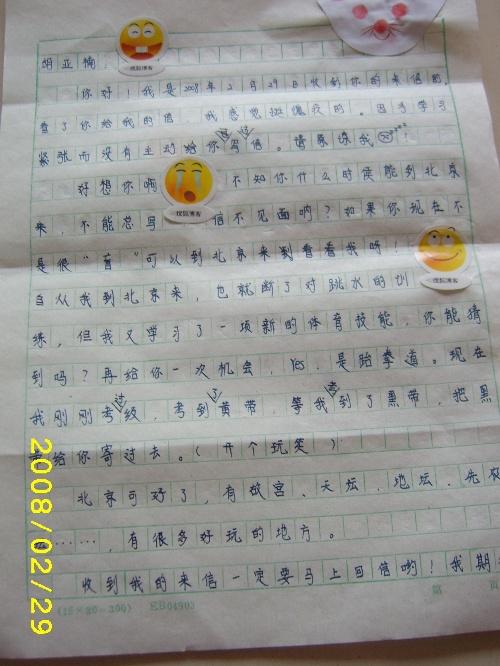 胡亚楠：
你好！我是2008年2月29日收到你的来信的，
看了你给我的信，我感觉挺愧疚的。因为学习
紧张而没有主动给你写信。请原谅我
好想你啊 不知你什么时候能到北京
搜狐博客
来，不能总写 信不见面呐？如果你现在不
搜狐博客
是很“苗”可以到北京来到看看我呀！
搜狐博客
自从我到北京来，也就断了对跳水的训
练，但我又学习了一项新的体育技能，你能猜
到吗？再给你一次机会，Yes，是跆拳道。现在
我刚刚考过级，考到了黄带，等我考到了黑带，把黑
给你寄过去。（开个玩笑）
北京可好了，有故宫、天坛、地坛、先农
……，有很多好玩的地方。
收到我的来信一定要马上回信哟！我期
(15×20=300) EB04903 第 页
2008/02/29